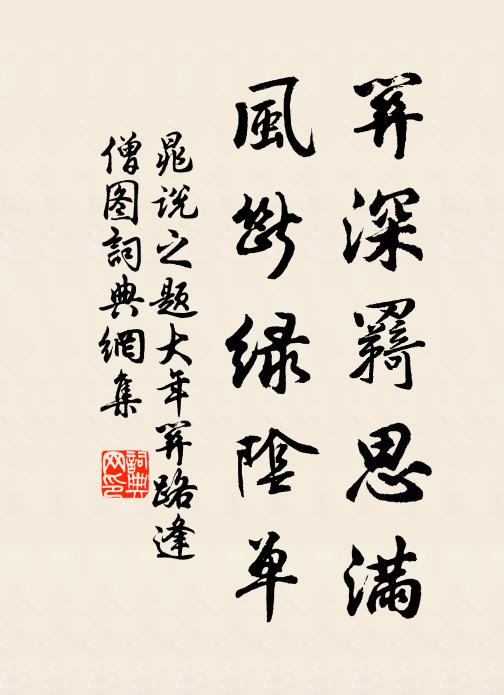 深羇思满
風断绿陰单
晁说之题大年路逢
僧图詞典網集
詞典网印